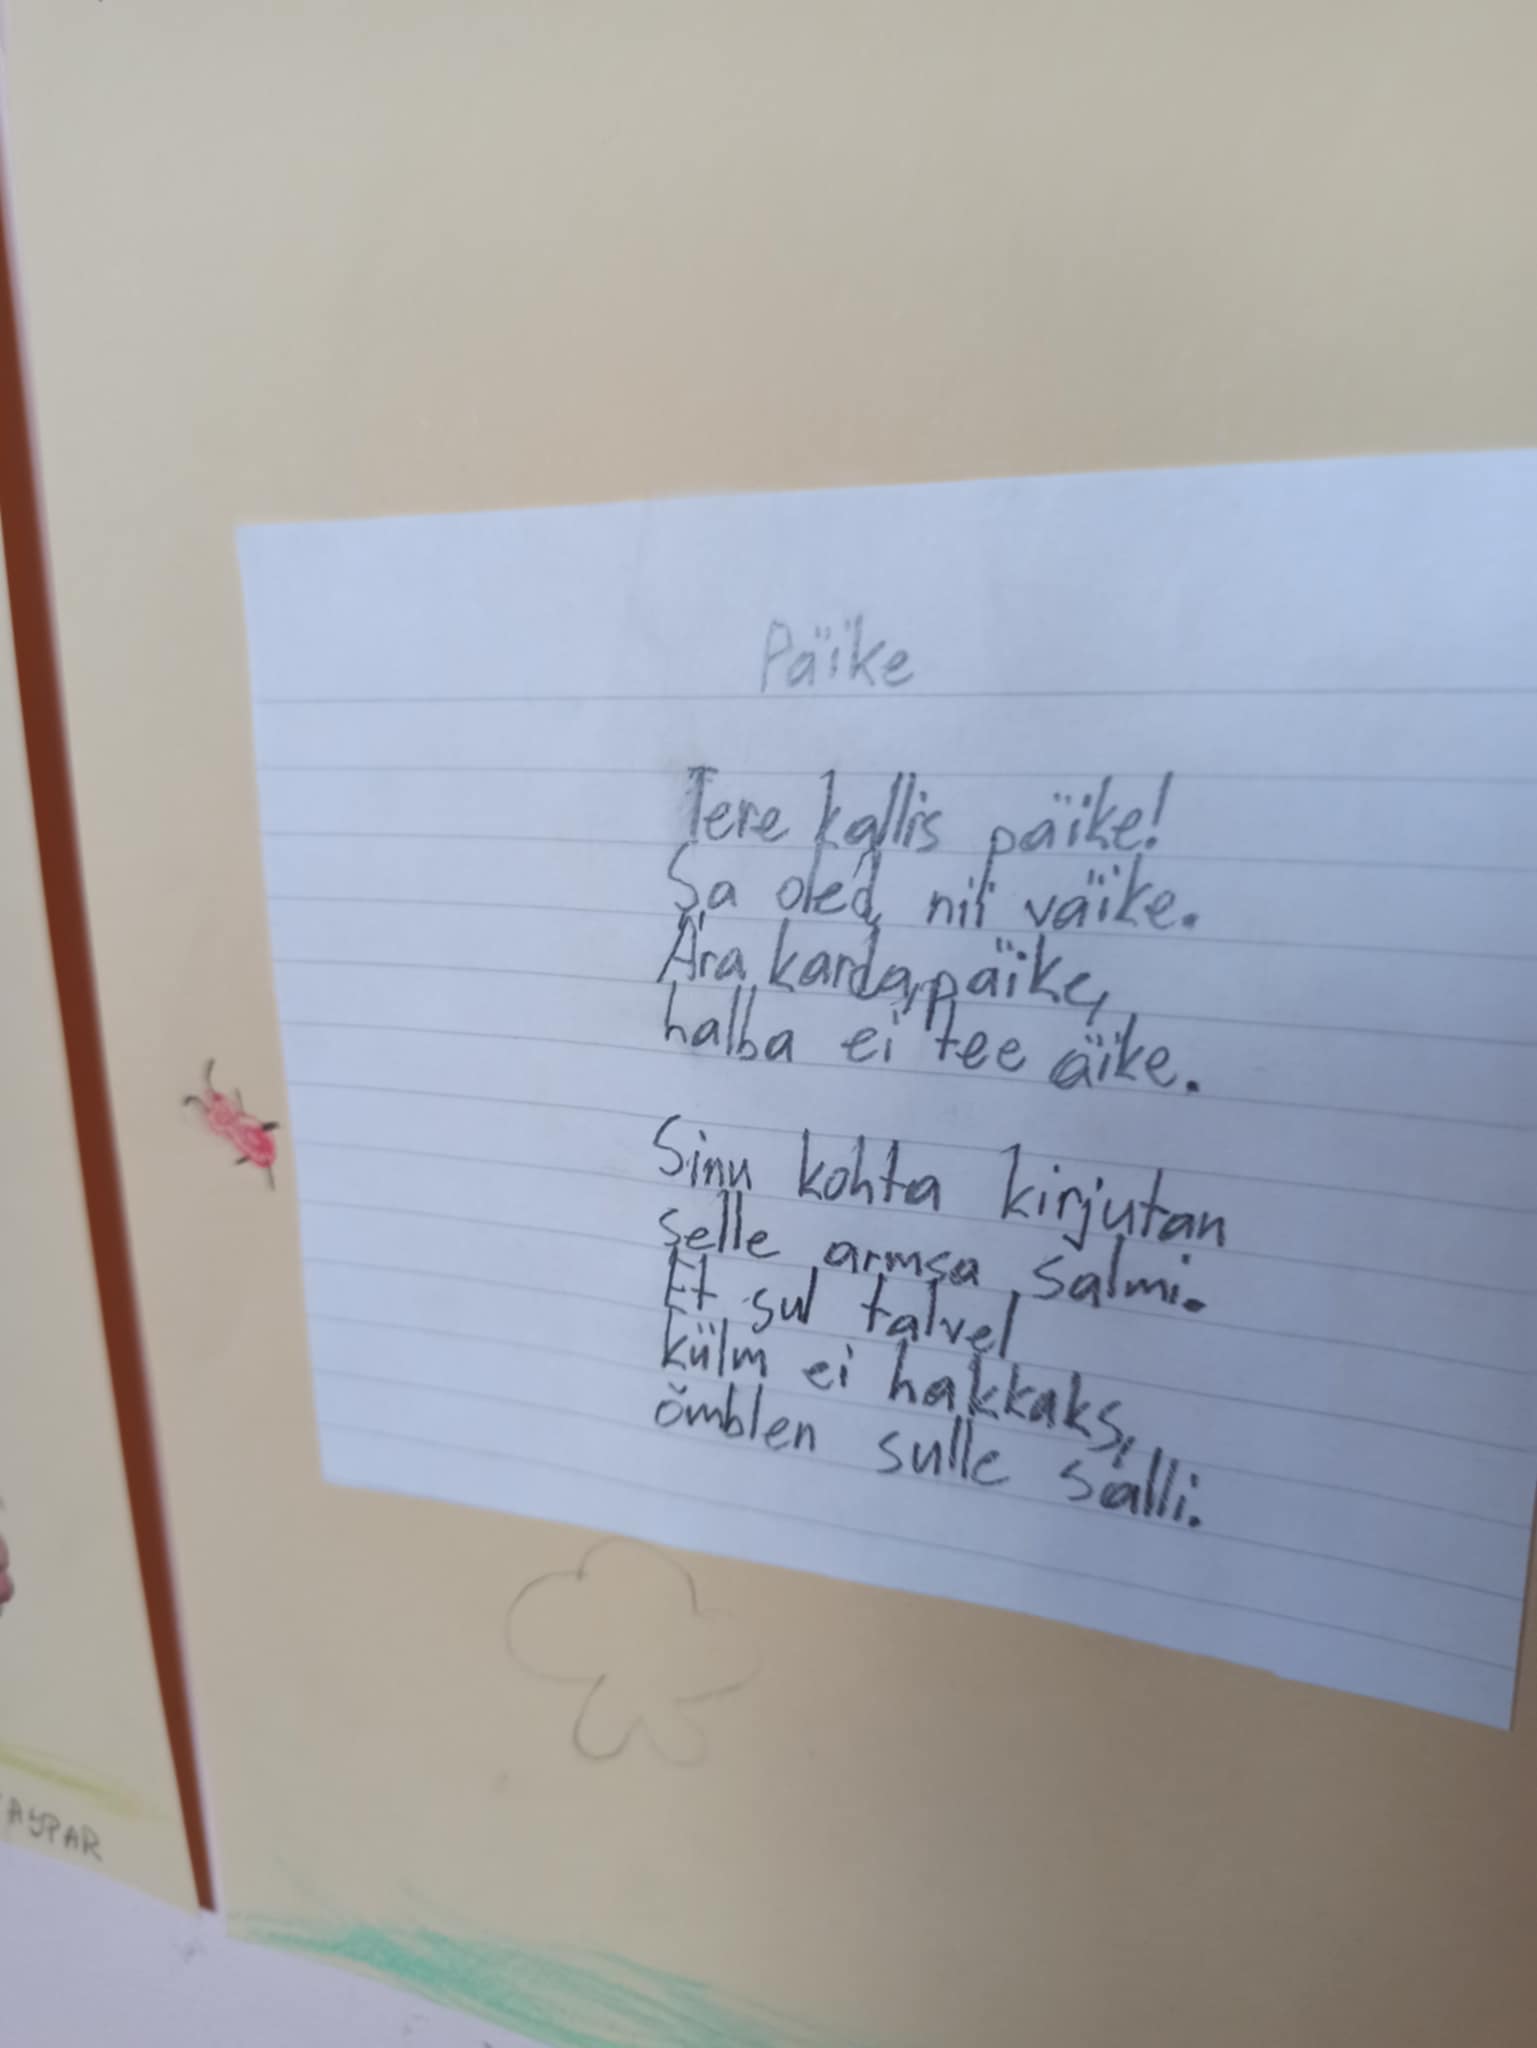 Päike
Tere kallis päike!
Sa oled nii väike.
Ära karda, päike,
halba ei tee äike.
Sinu kohta kirjutan
selle armsa salmi.
Et sul talvel
külm ei hakkaks,
õmblen sulle salli.